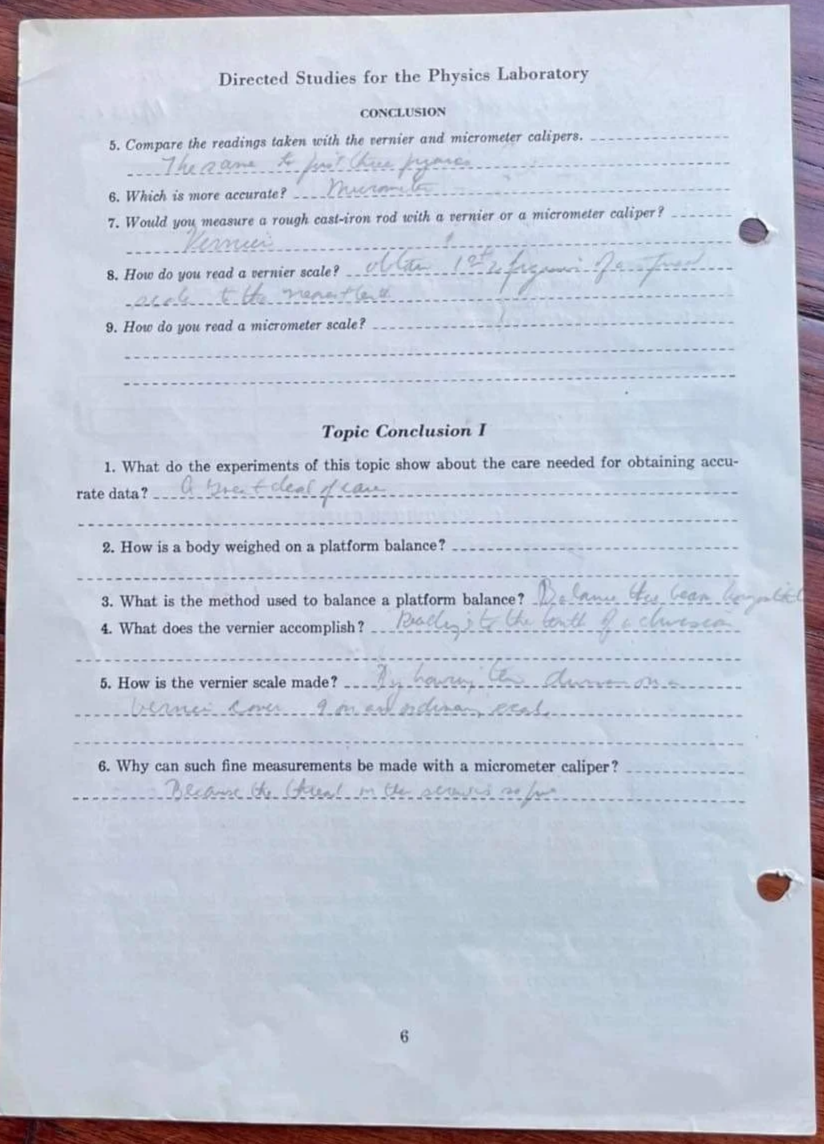 Directed Studies for the Physics Laboratory
CONCLUSION
5. Compare the readings taken with the vernier and micrometer calipers.
The same to first three figures
6. Which is more accurate? Micrometer
7. Would you measure a rough cast-iron rod with a vernier or a micrometer caliper?
Vernier
8. How do you read a vernier scale? obtain 1st 2 figures
scale to the
9. How do you read a micrometer scale?
Topic Conclusion I
1. What do the experiments of this topic show about the care needed for obtaining accu-
rate data? A great deal of care
2. How is a body weighed on a platform balance?
3. What is the method used to balance a platform balance? Balance the beam
4. What does the vernier accomplish? Reading to the tenth of a division
5. How is the vernier scale made? By having ten divisions on a
vernier cover 9 on an ordinary scale
6. Why can such fine measurements be made with a micrometer caliper?
Because the thread on the screw is so fine
6